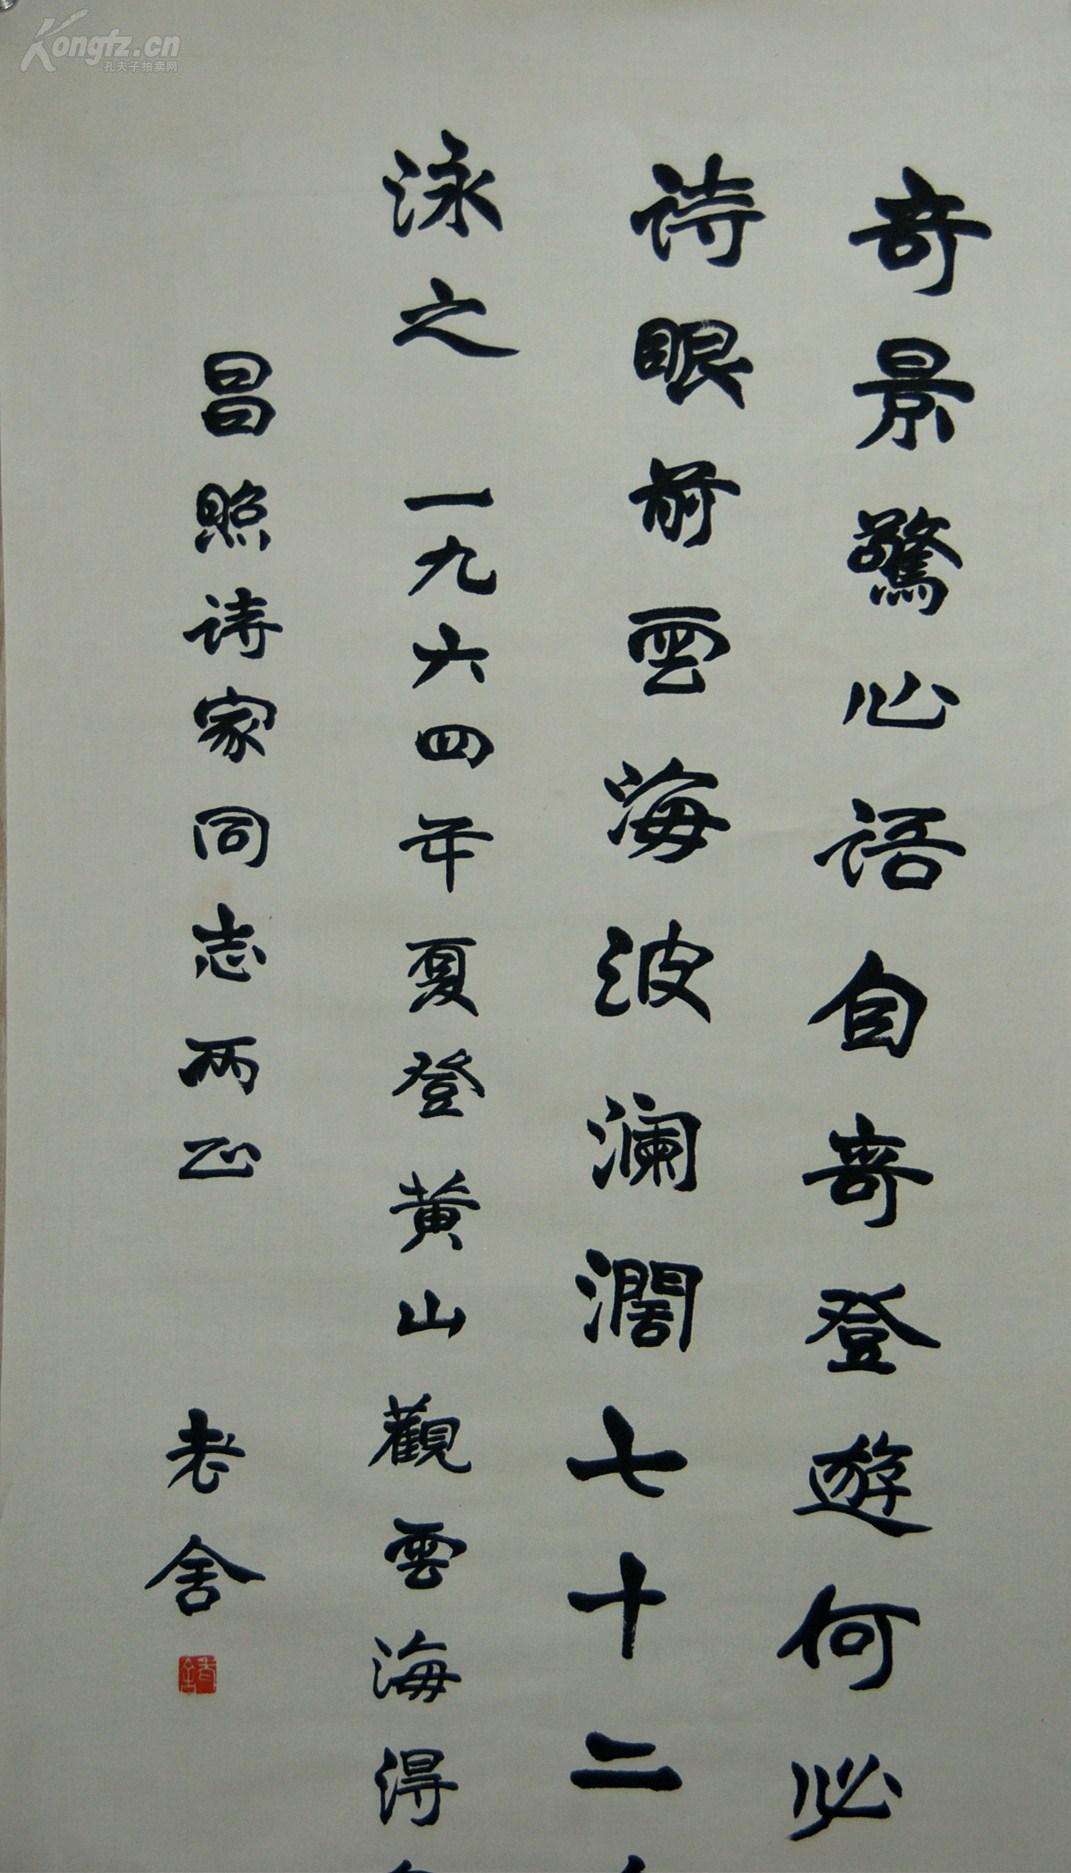 奇景驚心語自奇登遊何必
诗眼前雲海波澜濶七十二
泳之 一九六四年夏登黄山觀雲海得
昌照诗家同志两正 老舍
Kongfz.cn
孔夫子拍卖网